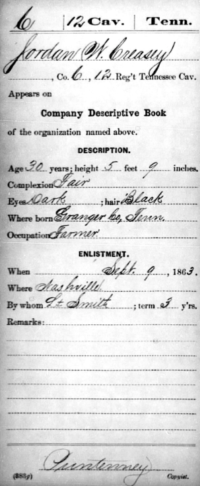 C | 12 Cav. | Tenn.
Jordan W. Creasey
, Co. C, 12 Reg't Tennessee Cav.
Appears on
Company Descriptive Book
of the organization named above.
DESCRIPTION.
Age 30 years; height 5 feet 9 inches.
Complexion Fair
Eyes Dark ; hair Black
Where born Granger Co, Tenn.
Occupation Farmer
ENLISTMENT.
When Sept. 9, 1863.
Where Nashville
By whom Lt Smith ; term 3 y'rs.
Remarks:
Puntenney
(383g) Copyist.